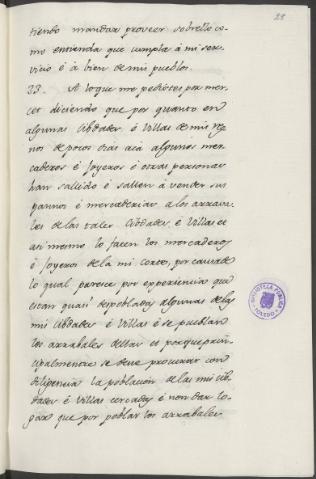 28
tiendo mandar proveer sobrello co-
mo entienda que cumple á mi ser-
vicio é á bien de mis pueblos.
23. A lo que me pedistes por mer-
cet diciendo que por quanto en
algunas Cibdades, é Villas de mis reg-
nos de pocos dias acá algunos mer-
caderos é Joyeros é otras personas
han sallido é sallen á vender sus
pannos é mercaderias a los arrava-
les de las tales Cibdades, é Villas et
asi mesmo lo facen los mercaderos
é Joyeros de la mi Corte, por causa de
lo qual paresce por experiencia que
estan quasi despobladas algunas de las
mis Cibdades é Villas é se pueblan
los arrabales dellas et porque prin-
cipalmente se deve procurar con
diligencia la poblacion de las mis Cib-
dades é Villas cercadas é non dar lo-
gar que por poblar los arrabales
BIBLIOTECA PUBLICA
TOLEDO